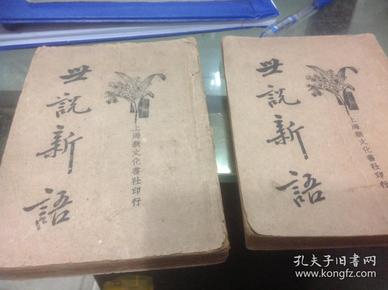 世説新語
上海新文化書社印行
世説新語
上海新文化書社印行
孔夫子旧书网
www.kongfz.com